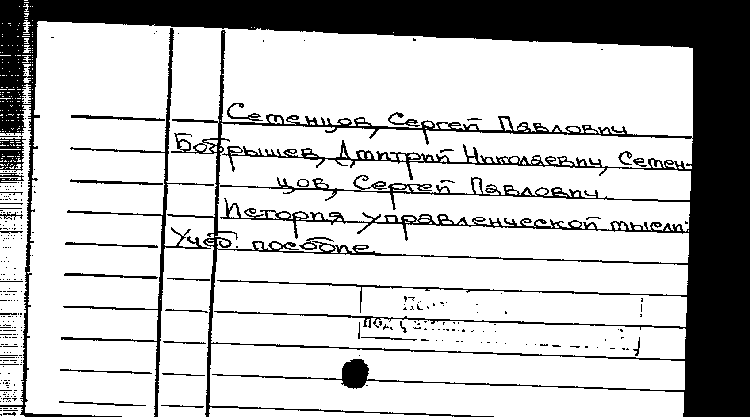 Семенцов, Сергей Павлович
Бобрышев, Дмитрий Николаевич, Семен-
цов, Сергей Павлович.
История управленческой мысли:
Учеб. пособие
под